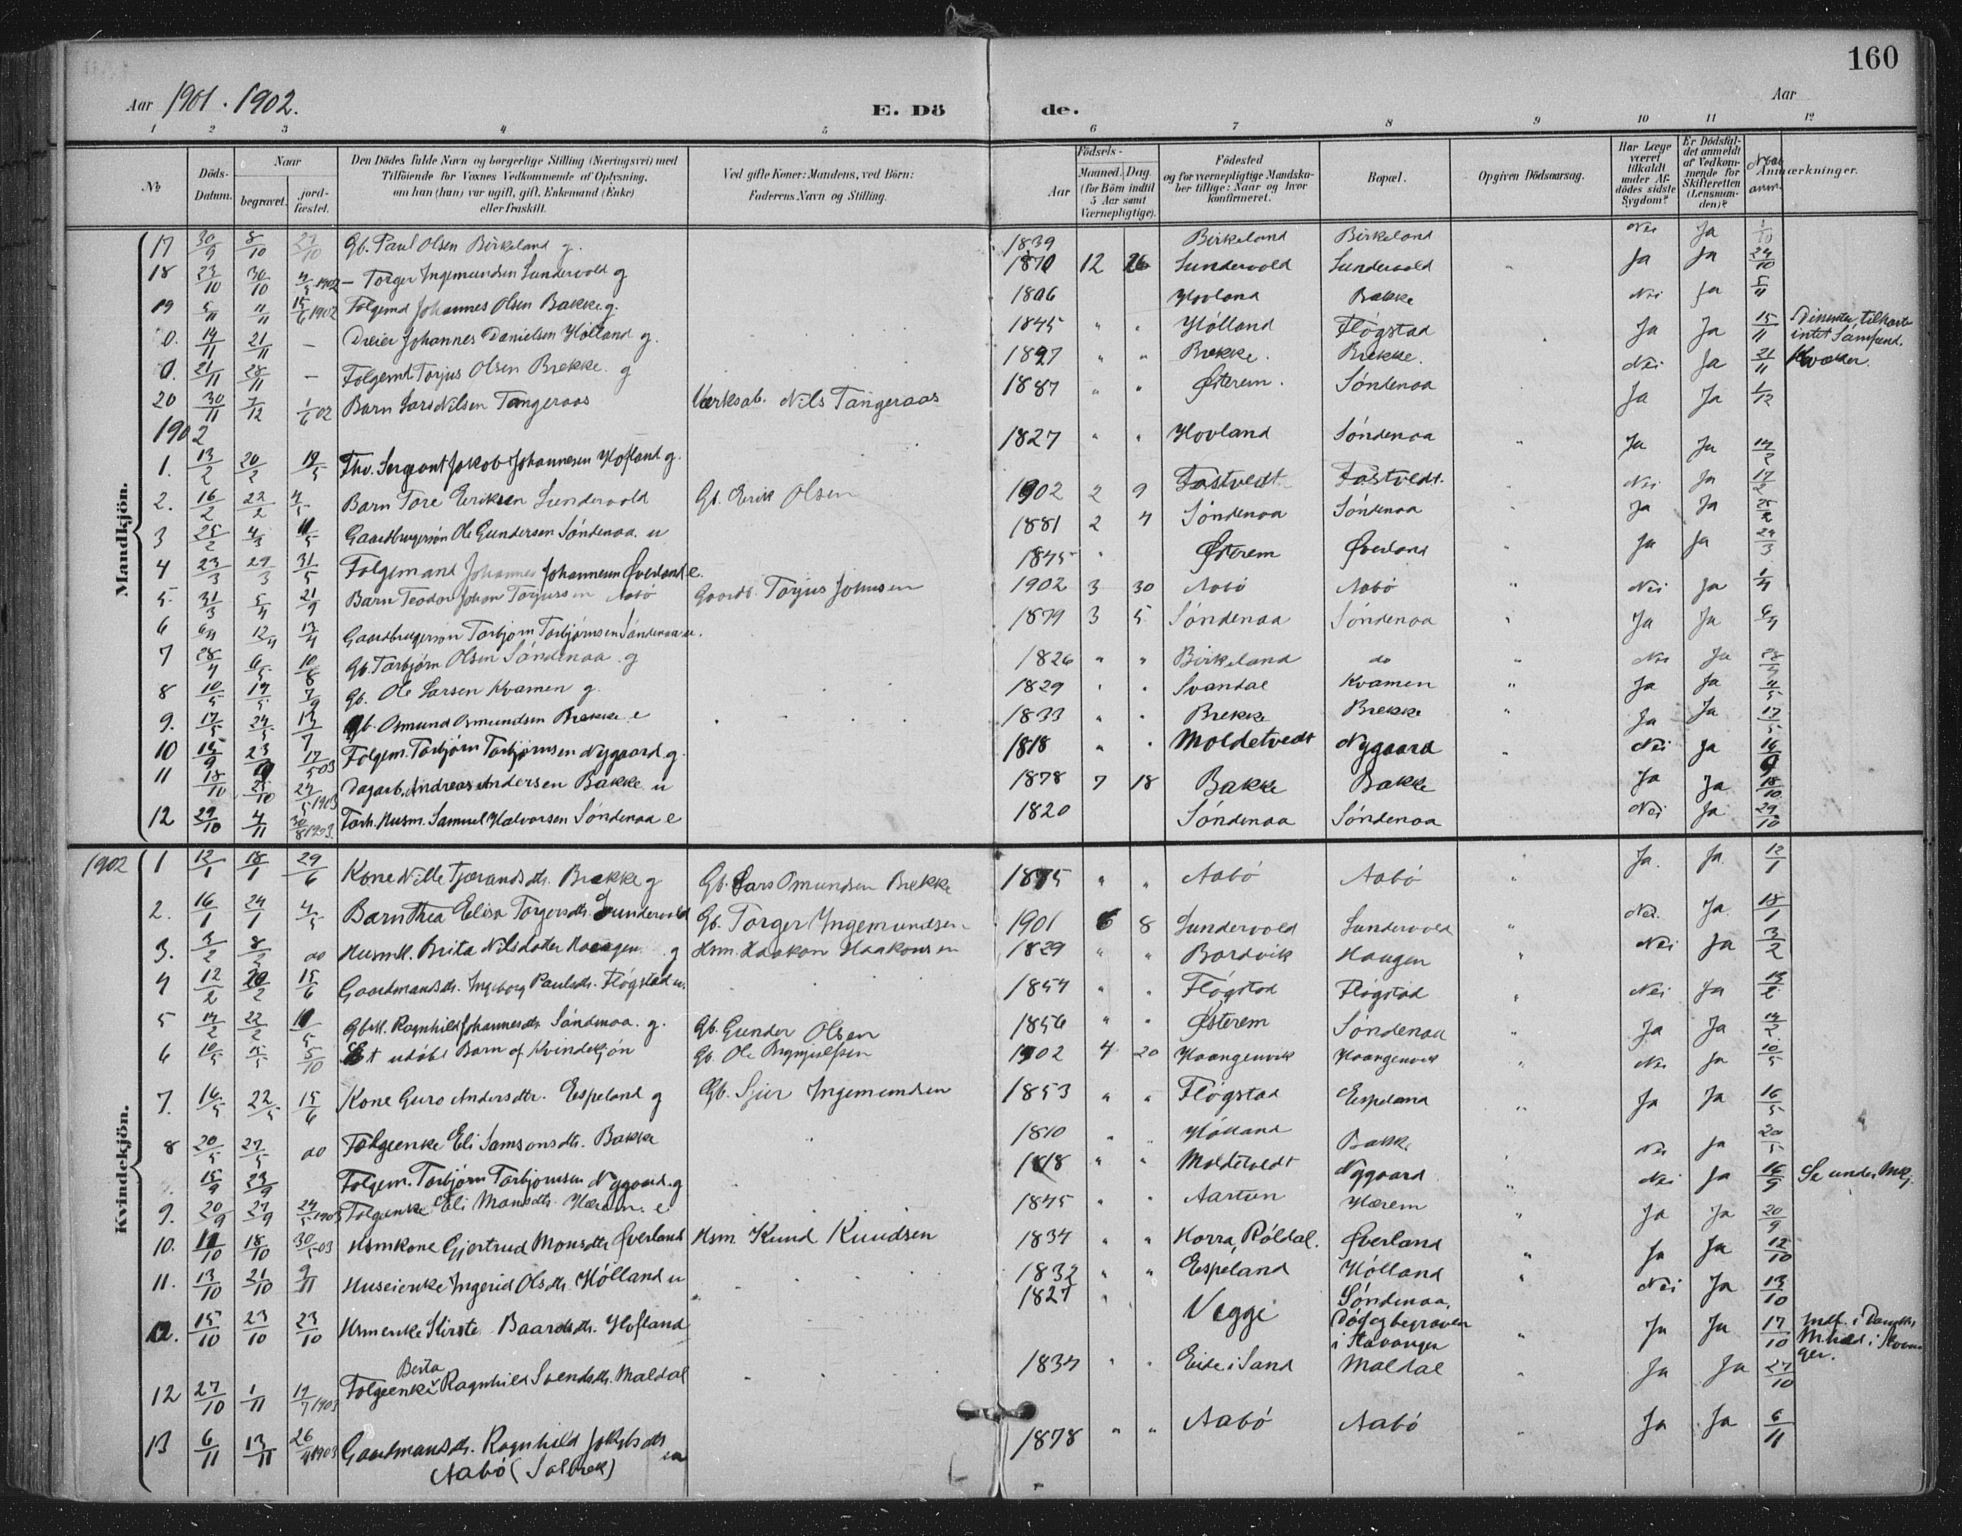 160
Aar 1901. 1902. E. Dö de. Aar
1 2 3 4 5 6 7 8 9 10 11 12
No Döds-Datum. Naar begravet. jord-fæstet. Den Dödes fulde Navn og borgerlige Stilling (Næringsvei) med Tilföiende for Voxnes Vedkommende af Oplysning, om han (hun) var ugift, gift, Enkemand (Enke) eller fraskilt. Ved gifte Koner: Mandens, ved Börn: Faderens Navn og Stilling. Födsels- Aar Maaned. Dag. (for Börn indtil 5 Aar samt Værnepligtige). Födested og for værnepligtige Mandska-ber tillige: Naar og hvor konfirmeret. Bopæl. Opgiven Dödsaarsag. Har Læge været tilkaldt under Af-dödes sidste Sygdom? Er Dödsfal-det anmeldt af Vedkom-mende for Skifteretten (Lensman-den)? Naar anm. Anmærkninger.
Mandkjön.
17 30/9 8/10 Gb. Paul Olsen Birkeland g. 1839 Birkeland Birkeland Nei Ja 1/10
18 23/10 30/10 4/5 1902 – Torger Ingemundsen Sundervold g 1870 12 26 Sundervold Sundervold Ja Ja 24/10
19 5/11 11/11 15/6 1902 Folgemd Johannes Olsen Bakke g. 1806 Hovland Bakke Nei Ja 5/11
0. 14/11 21/11 – Dreier Johannes Danielsen Hólland g. 1845 " " Hólland Flógstad Ja Ja 15/11 Dissenter, tilhørte intet Samfund.
0. 21/11 28/11 – Folgemd Torjus Olsen Brekke g 1827 " " Brekke. Brekke. Nei Ja 21/11 Kvæker.
20 30/11 7/12 1/6 02 Barn Lars Nilsen Tangeraas Værksab. Nils Tangeraas 1887 " " Østerem. Sóndenaa Ja Ja 1/12
1902
1. 13/2 20/2 19/5 Fhv. Sergeant Jakob Johannesen Hofland g. 1827 " " Hovland Sóndenaa Ja Ja 14/2
2. 16/2 22/2 4/5 Barn Tore Eeriksen Sundervold Gb. Eerik Olsen 1902 2 9 Fastvedt Fastvedt. Nei Ja 17/2
3 25/2 4/3 11/5 Gaardbrugersøn Ole Gundersen Sóndenaa. u 1881 2 4 Sóndenaa Sóndenaa Ja Ja 25/2
4 23/3 29/3 31/5 Folgemand Johannes Johannesen Øverland e. 1845 " Østerem Øverland Ja Ja 24/3
5. 31/3 5/4 21/9 Barn Teodor Johan Torjussen Aabó Gaardb. Torjus Johnsen 1902 3 30 Aabó Aabó Nei Ja 1/4
6 6/4 12/4 13/4 Gaardbrugersøn Torbjørn Torbjørnsen Sóndenaa u. 1879 3 5 Sóndenaa Sóndenaa Ja Ja 6/4
7 28/4 6/5 10/8 Gb. Torbjørn Olsen Sóndenaa. g 1826 " " Birkeland do Nei Ja 28/4
8 10/5 17/5 7/9 Gb. Ole Larsen Kvamen g. 1829 " " Svandal Kvamen Ja Ja
9. 17/5 24/5 13/7 Gb. Osmund Osmundsen Brekke e 1833 " " Brekke Brekke Ja Ja 17/5
10 15/9 23/9 17/5 03 Folgem. Torbjørn Torbjørnsen Nygaard g. 1818 " " Moldetvedt Nygaard Nei Ja 16/9
11 18/10 25/10 24/5 1903 Dagarb. Andreas Andersen Bakke u 1878 7 18 Bakke Bakke Ja Ja 18/10
12 29/10 4/11 30/8 1903. Forh. Husm. Samuel Halvorsen Sóndenaa e 1820 Sóndenaa Sóndenaa Nei Ja 29/10
Kvindekjön.
1902 1 12/1 18/1 29/6 Kone Nille Tjærandsdtr. Brekke g Gb. Lars Omundsen Brekke 1875 " " Aabó Aabó Ja. Ja. 12/1
2. 16/1 24/1 4/5 Barn Thea Elisa Torgersdtr. Sundervold Gb. Torger Ingemundsen 1901 6 8 Sundervold Sundervold Nei. Ja. 18/1
3. 3/2 8/2 do Husmk. Brita Nilsdatter Haugen g Hsm. Haakon Haakonsen 1829 " " Bordvik Haugen Nei Ja 3/2
4 12/2 20/2 15/6 Gaardmandsdtr. Ingeborg Paulsdtr. Flógstad u. 1854 " " Flógstad Flógstad Nei Ja 13/2
5 14/2 22/2 11/5 Gbk. Ragnhild Johannesdtr Sóndenaa. g. Gb. Gunder Olsen 1856 " " Østerem Sóndenaa Ja Ja 14/2
6 10/5 15/5 5/10 Et udøbt Barn af Kvindekjón Gb. Ole Brynjulfsen 1902 4 20 Haangenvik Haangenvik Nei Ja 10/5
7. 16/5 22/5 15/6 Kone Guro Andersdtr. Espeland g Gb. Sjur Ingemundsen 1853 " " Flógstad Espeland Ja Ja 16/5
8 20/5 27/5 do Folgeenke Eli Samsonsdtr. Bakke 1810 " " Hólland Bakke Nei Ja 20/5
15/9 23/9 Folgem. Torbjørn Torbjørnsen Nygaard g 1818 " " Moldetvedt Nygaard Nei Ja 16/9 Se under Mkj.
9. 20/9 27/9 24/5 1903 Folgeenke Eli Monsdtr. Hærem. e 1845 " " Aartun Hærem Ja Ja 20/9
10. 11/10 18/10 30/5 03 Hsmkone Gjertrud Monsdtr Øverland Hsm Knud Knudsen 1834 " " Horra, Róldal. Øverland Ja Ja 12/10
11. 13/10 21/10 9/11 Huseienke Ingerid Olsdtr. Hólland u 1832 " " Espeland Hólland Nei Ja 13/10
12. 15/10 23/10 23/10 Hsmenke Kirste Baardsdtr. Hofland 1827 " Veggi Sóndenaa, Dód og begraven i Stavanger Ja Ja 17/10 Indf. i
12 27/10 1/11 12/7 1903 Folgeenke Berta Ragnhild Svendsdtr. Maldal 1834 " " Eide i Sand Maldal Ja Ja 27/10
13 6/11 13/11 26/4 1903 Gaardmandsdtr. Ragnhild Jakobsdtr Aabó (Solbrek) 1878 " " Aabó Aabó Ja Ja 6/11